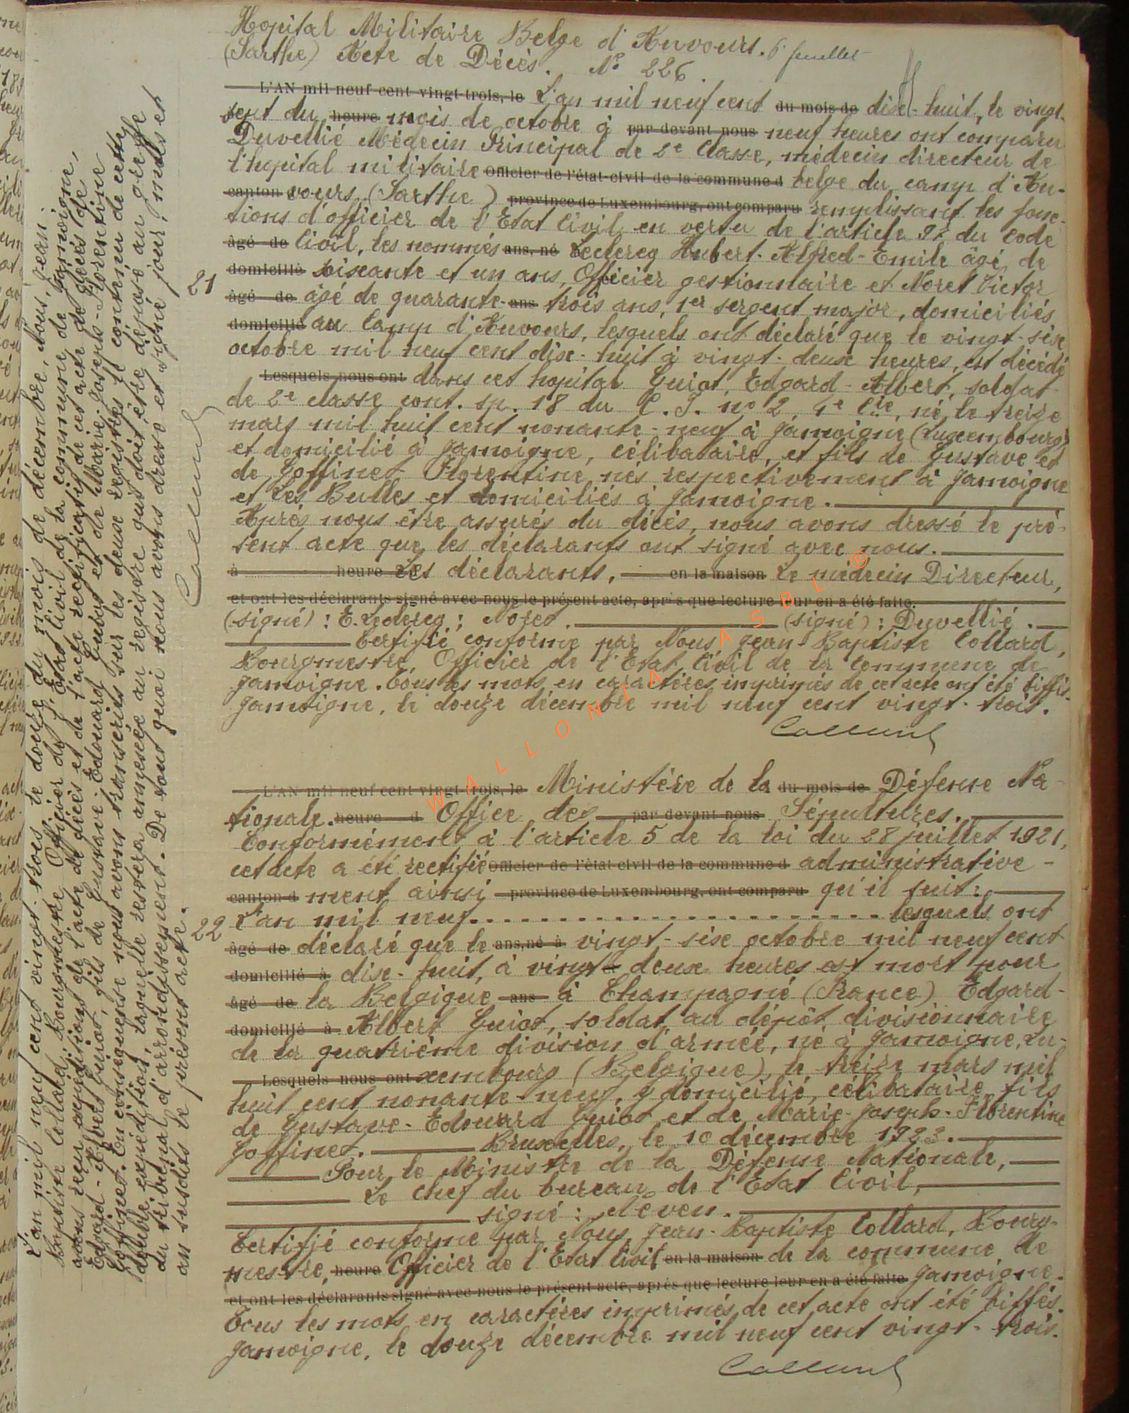 Hopital Militaire Belge d'Auvours. 6e feuillet
(Sarthe) Acte de Décès. N° 226.
L'AN mil neuf cent vingt-trois, le L'an mil neuf cent du mois de dix-huit, le vingt-
sept du heure mois de octobre à par devant nous neuf heures ont comparu
Duvellié Médecin Principal de 2e Classe, médecin directeur de
l'hopital militaire Officier de l'état-civil de la commune d belge du camp d'Au-
canton vours (Sarthe) province de Luxembourg, ont comparu remplissant les fonc-
tions d'officier de l'Etat Civil en vertu de l'article 97 du Code
âgé de Civil, les nommés ans, né Leclercq Hubert-Alfred-Emile âgé de
domicilié soixante et un ans, Officier gestionnaire et Noret Victor
21
âgé de âgé de quarante ans trois ans, 1er sergent major, domiciliés
domicilié au Camp d'Auvours, lesquels ont déclaré que le vingt-six
octobre mil neuf cent dix-huit à vingt-deux heures, est décédé
Lesquels nous ont dans cet hopital Guiot, Edgard-Albert, soldat
de 2e classe cont. sp. 18 du C. I. n° 2, 4e Cie, né le treize
mars mil huit cent nonante-neuf à Jamoigne (Luxembourg)
et domicilié à Jamoigne, célibataire, et fils de Gustave et
de Goffinet Florentine nés respectivement à Jamoigne
et Les Bulles et domiciliés à Jamoigne.
Après nous être assurés du décès, nous avons dressé le pré-
sent acte que les déclarants ont signé avec nous.
à heure Les déclarants, en la maison Le médecin Directeur,
et ont les déclarants signé avec nous le présent acte, après que lecture leur en a été faite.
(signé) : E. Leclercq ; Noret. (signé) : Duvellié.
Certifié conforme par Nous Jean-Baptiste Collard,
Bourgmestre, Officier de l'Etat Civil de la Commune de
Jamoigne. Tous les mots en caractères imprimés de cet acte ont été biffés.
Jamoigne, le douze décembre mil neuf cent vingt-trois.
Collard
L'AN mil neuf cent vingt-trois, le Ministère de la du mois de Défense Na-
tionale. heure d Office des par devant nous Sépultures.
Conformément à l'article 5 de la loi du 28 juillet 1921,
cet acte a été rectifié Officier de l'état-civil de la commune d administrative-
canton d ment ainsi province de Luxembourg, ont comparu qu'il suit :
22
L'an mil neuf. . . . . . . . . . . . . . . . . . . . . . . . . lesquels ont
âgé de déclaré que le ans, né à vingt-six octobre mil neuf cent
domicilié à dix-huit, à vingt-deux heures est mort pour
âgé de la Belgique ans à Champagné (France) Edgard-
domicilié à Albert Guiot, soldat au dépôt divisionnaire
de la quatrième division d'armée, né à Jamoigne, Lu-
Lesquels nous ont xembourg (Belgique), le treize mars mil
huit cent nonante-neuf, y domicilié, célibataire, fils
de Gustave-Edouard Guiot et de Marie-Joseph-Florentine
Goffinet. Bruxelles, le 10 décembre 1923.
Pour le Ministre de la Défense Nationale,
Le Chef du bureau de l'Etat Civil,
signé :
Certifié conforme par Nous Jean-Baptiste Collard, Bourg-
mestre, heure Officier de l'Etat Civil en la maison de la commune de
et ont les déclarants signé avec nous le présent acte, après que lecture leur en a été faite Jamoigne.
Tous les mots en caractères imprimés de cet acte ont été biffés.
Jamoigne, le douze décembre mil neuf cent vingt-trois.
Collard
L'an mil neuf cent vingt-trois, le douze du mois de décembre, Nous, Jean-
Baptiste Collard, Bourgmestre, Officier de l'Etat Civil de la commune de Jamoigne,
avons reçu expéditions de l'acte de décès et de l'acte rectificatif de cet acte de décès de
Edgard-Albert Guiot, fils de Gustave-Edouard Guiot et de Marie-Joseph-Florentine
Goffinet. En conséquence nous avons transcrits sur les deux registres le contenu de cette
double expédition, laquelle restera annexée au registre qui doit être déposé au greffe
du tribunal d'arrondissement. De tout quoi nous avons dressé et signé jour mois et
an susdits le présent acte.
Collard
WALLONIA ASBL ©